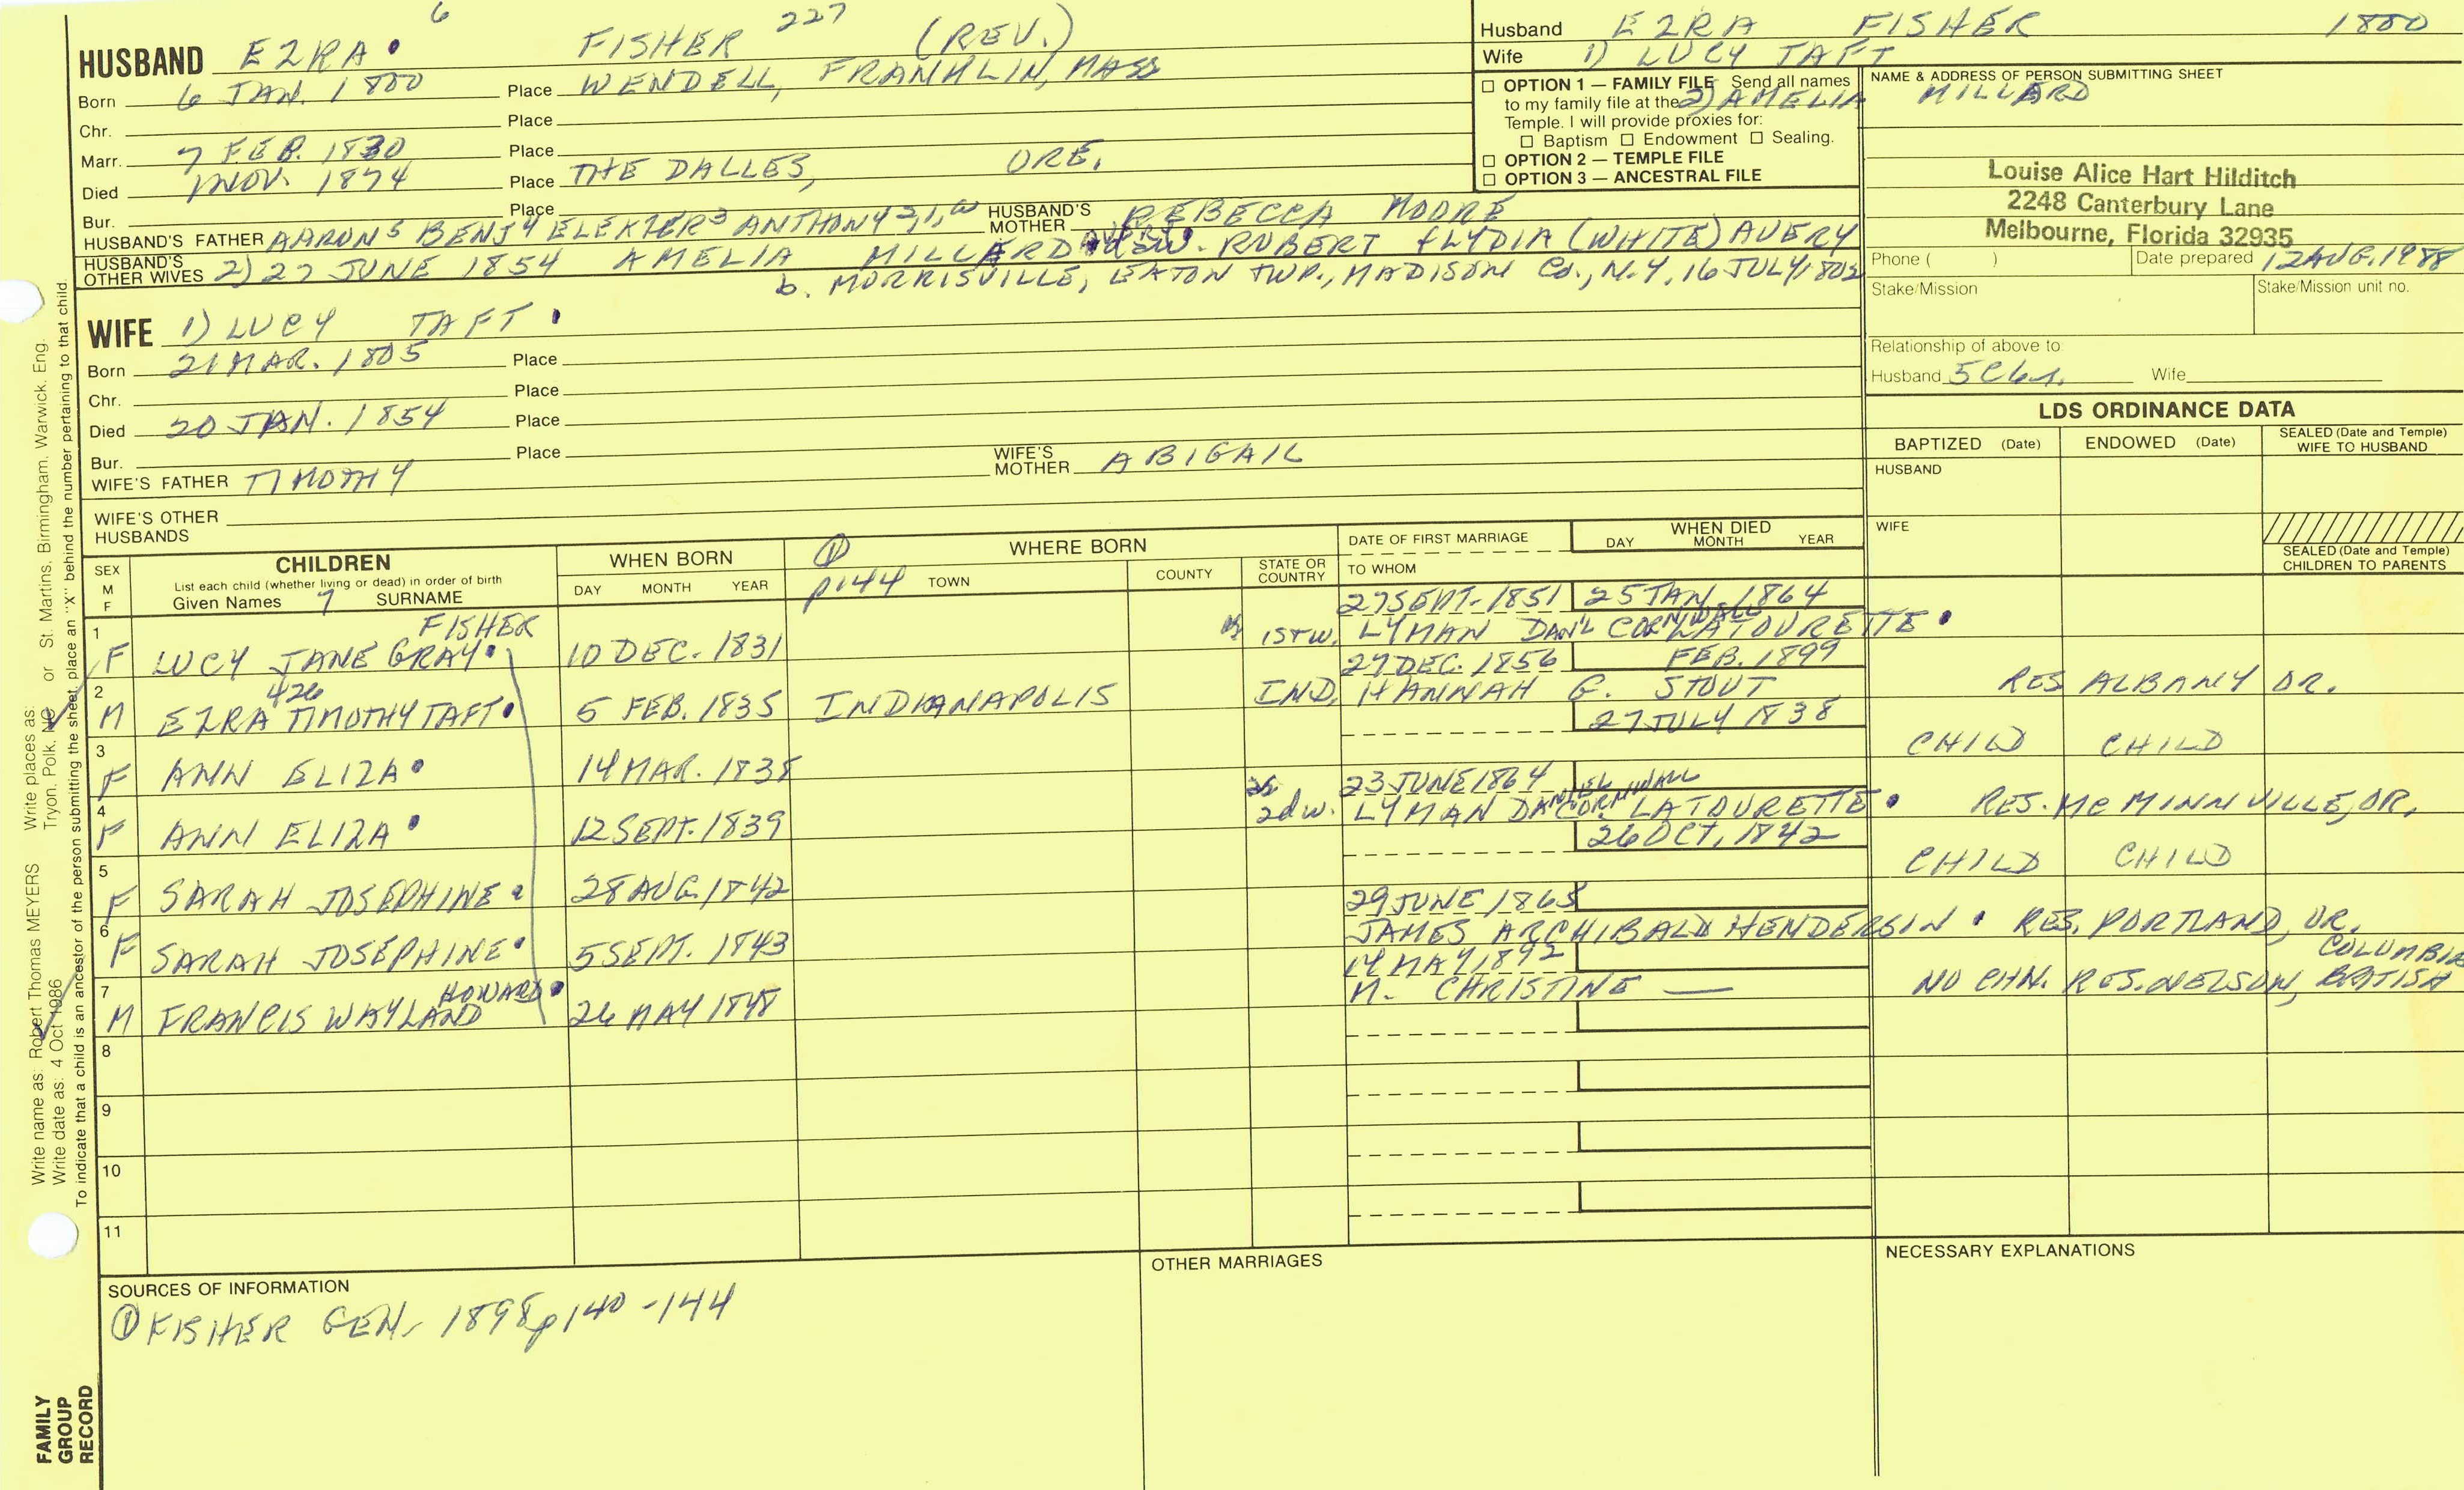 6
HUSBAND EZRA • FISHER 227 (REV.)
Born 6 JAN. 1800 Place WENDELL, FRANKLIN, MASS
Chr. Place
Marr. 7 FEB. 1830 Place
Died 1 NOV. 1874 Place THE DALLES, ORE.
Bur. Place
HUSBAND'S FATHER AARON5 BENJ4 ELEKZER3 ANTHONY2,1, HUSBAND'S MOTHER REBECCA MOORE
HUSBAND'S OTHER WIVES 2) 27 JUNE 1854 AMELIA MILLARD W. ROBERT & LYDIA (WHITE) AVERY
b. MORRISVILLE, EATON TWP., MADISON CO., N.Y. 16 JULY 1802
WIFE 1) LUCY TAFT •
Born 21 MAR. 1805 Place
Chr. Place
Died 20 JAN. 1854 Place
Bur. Place
WIFE'S FATHER TIMOTHY WIFE'S MOTHER ABIGAIL
WIFE'S OTHER HUSBANDS
Husband EZRA FISHER 1800
Wife 1) LUCY TAFT
☐ OPTION 1 — FAMILY FILE Send all names
to my family file at the 2) AMELIA MILLARD
Temple. I will provide proxies for:
☐ Baptism ☐ Endowment ☐ Sealing.
☐ OPTION 2 — TEMPLE FILE
☐ OPTION 3 — ANCESTRAL FILE
NAME & ADDRESS OF PERSON SUBMITTING SHEET
Louise Alice Hart Hilditch
2248 Canterbury Lane
Melbourne, Florida 32935
Phone ( ) Date prepared 12 AUG. 1988
Stake/Mission Stake/Mission unit no.
Relationship of above to:
Husband 5C6x1. Wife
LDS ORDINANCE DATA
BAPTIZED (Date) ENDOWED (Date) SEALED (Date and Temple) WIFE TO HUSBAND
HUSBAND
WIFE
SEALED (Date and Temple) CHILDREN TO PARENTS
SEX M F
CHILDREN
List each child (whether living or dead) in order of birth
Given Names 7 SURNAME
WHEN BORN
DAY MONTH YEAR
① p144
WHERE BORN
TOWN COUNTY STATE OR COUNTRY
DATE OF FIRST MARRIAGE
TO WHOM
WHEN DIED
DAY MONTH YEAR
27 SEPT. 1851 25 JAN. 1864
1 F LUCY JANE GRAY • FISHER 10 DEC. 1831 1ST W. LYMAN DAN'L CORNWALL LATOURETTE •
27 DEC. 1856 FEB. 1899
2 M EZRA TIMOTHY TAFT • 426 5 FEB. 1835 INDIANAPOLIS IND. HANNAH G. STOUT RES ALBANY OR.
27 JULY 1838
3 F ANN ELIZA • 14 MAR. 1838 CHILD CHILD
23 JUNE 1864
4 F ANN ELIZA • 12 SEPT. 1839 2d W. LYMAN DANIEL CORNWALL LATOURETTE • RES. MC MINNVILLE, OR.
26 OCT. 1842
5 F SARAH JOSEPHINE • 28 AUG. 1842 CHILD CHILD
29 JUNE 1868
6 F SARAH JOSEPHINE • 5 SEPT. 1843 JAMES ARCHIBALD HENDERSIN • RES. PORTLAND, OR.
14 MAY 1892
7 M FRANCIS WAYLAND HOWARD • 26 MAY 1848 M. CHRISTINE — NO CHN. RES. NELSON, BRITISH COLUMBIA
8
9
10
11
SOURCES OF INFORMATION
① FISHER GEN. 1898 p140-144
OTHER MARRIAGES
NECESSARY EXPLANATIONS
Write name as: Robert Thomas MEYERS Write places as: St. Martins, Birmingham, Warwick, Eng.
Write date as: 4 Oct 1986 Tryon, Polk, NC or
To indicate that a child is an ancestor of the person submitting the sheet, place an "X" behind the number pertaining to that child.
FAMILY
GROUP
RECORD